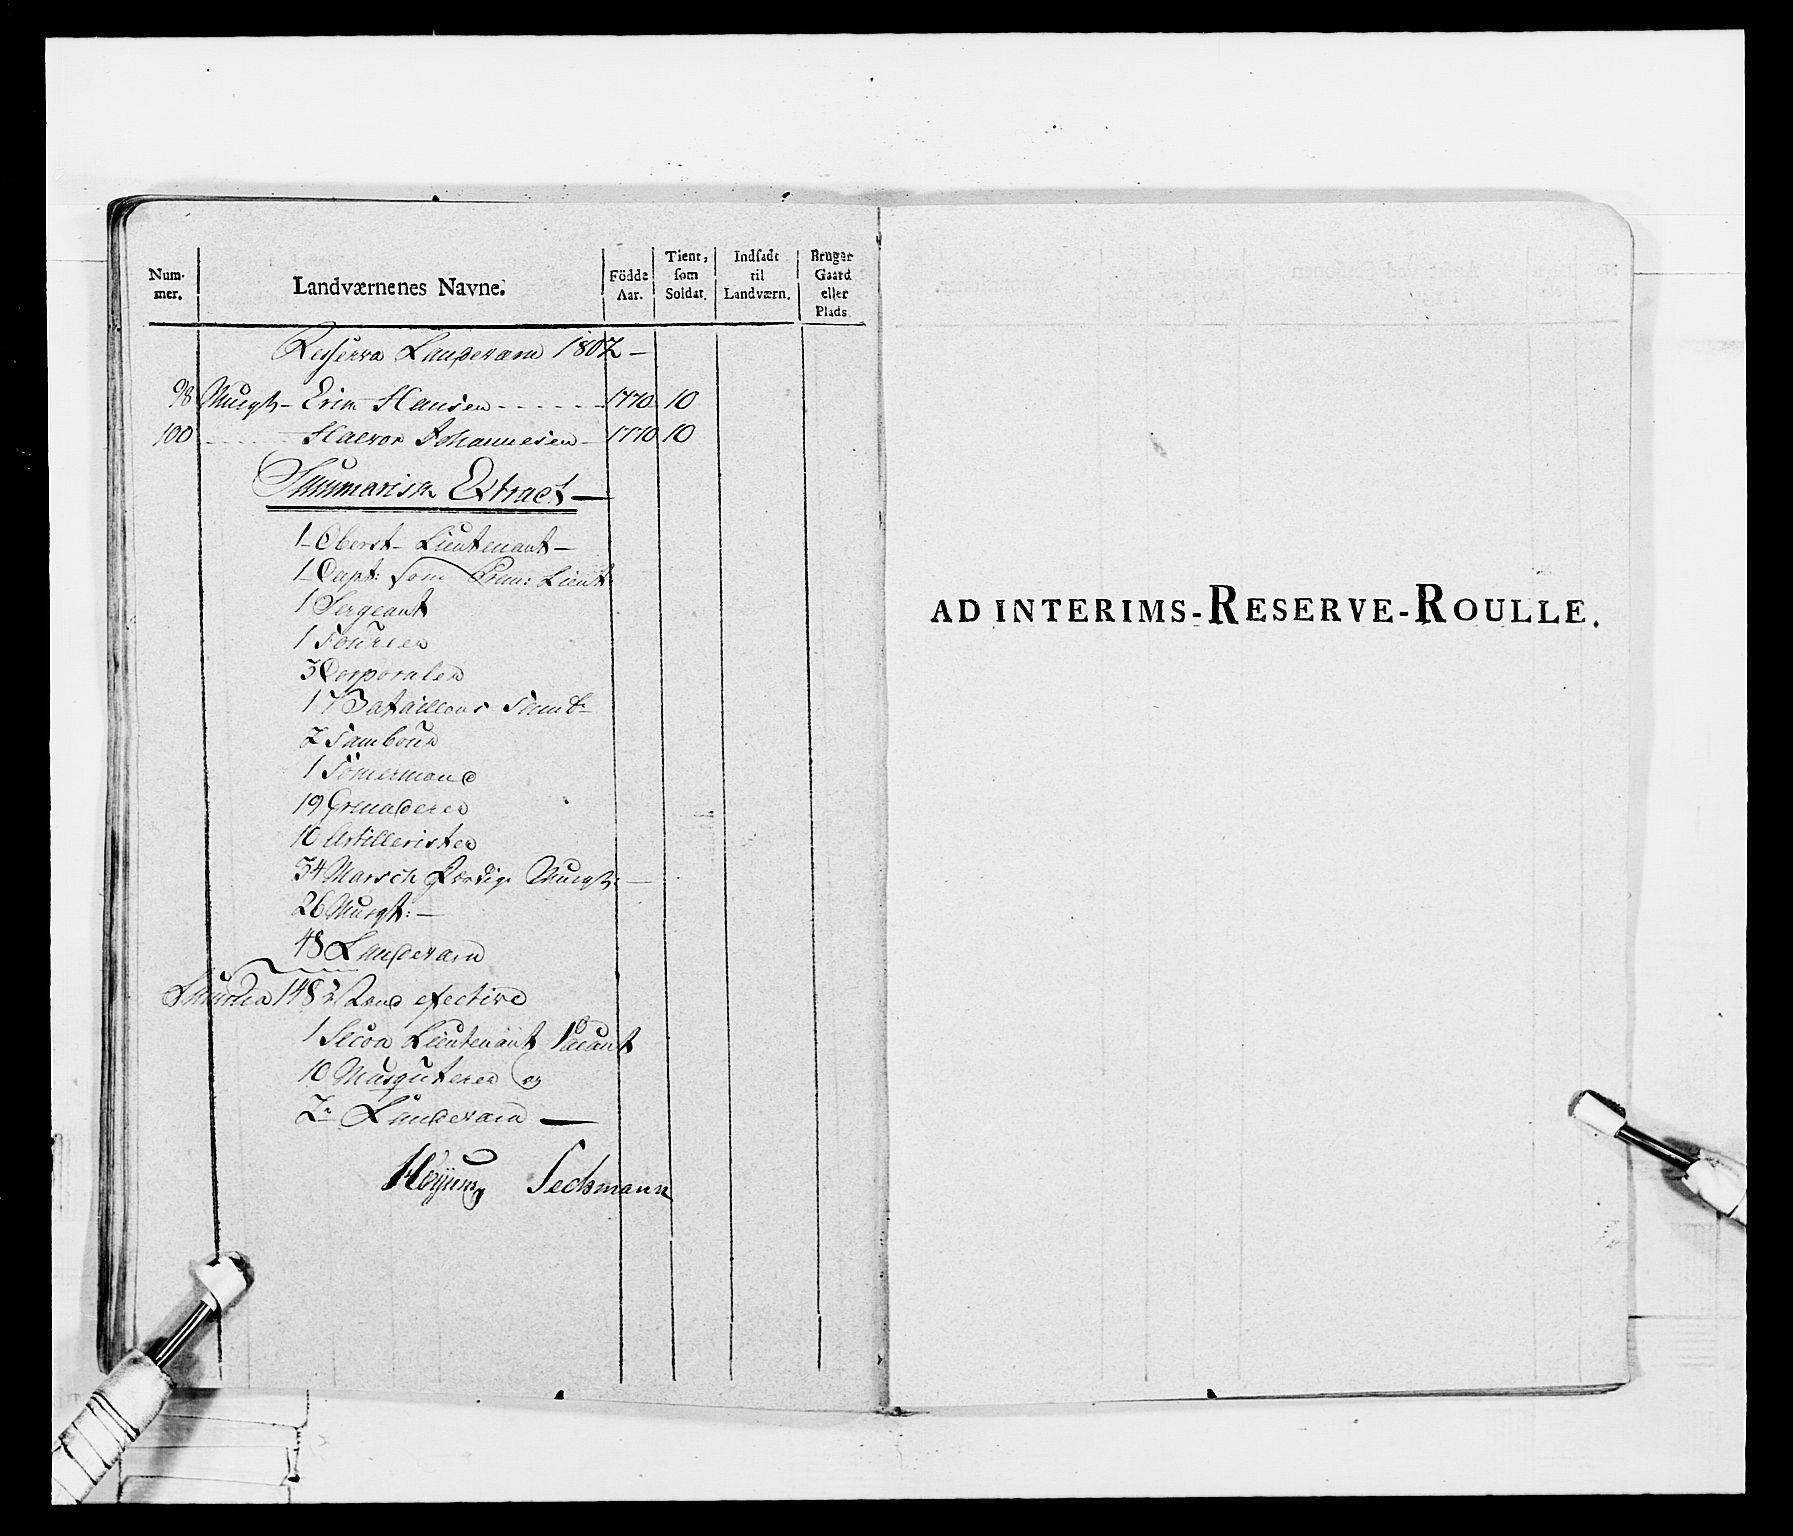 Num-
mer.
Landværnenes Navne.
Födde
Aar.
Tient,
som
Soldat.
Indsadt
til
Landværn.
Bruger
Gaard
eller
Plads
Resserve Landeværn 1802 —
98 Musqt — Hansen - - - - - - 1770 10
100 - - - Halvor Johannesen — 1770 10
Summarisk Extract —
1 Oberst-Lieutenant —
1 Capt: som Prem: Lieut:
1 Sergeant
1 Fourier
3 Corporaler
1 Batallions
2 Tambour
1 Tömermand
19 Grenaderer
10 Artillerister
34 Marsch Færdige Musqt: —
26 Musqt: —
48 Landeværn
Summa 148 Mand efective
1 Secon Lieutenant Vacant
10 Musqueterer og
2 Landeværn —
AD INTERIMS-RESERVE-ROULLE.